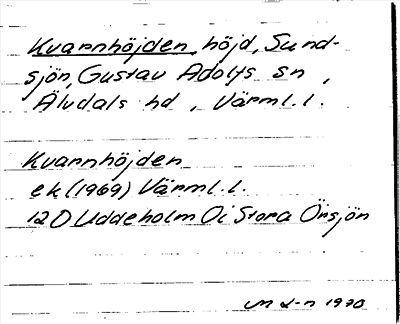 Kvarnhöjden, höjd, Sund-
sjön, Gustav Adolfs sn,
Älvdals hd, Värml. l.
Kvarnhöjden
ek (1969) Värml. l.
12 D Uddeholm Oi Stora Örsjön
1970